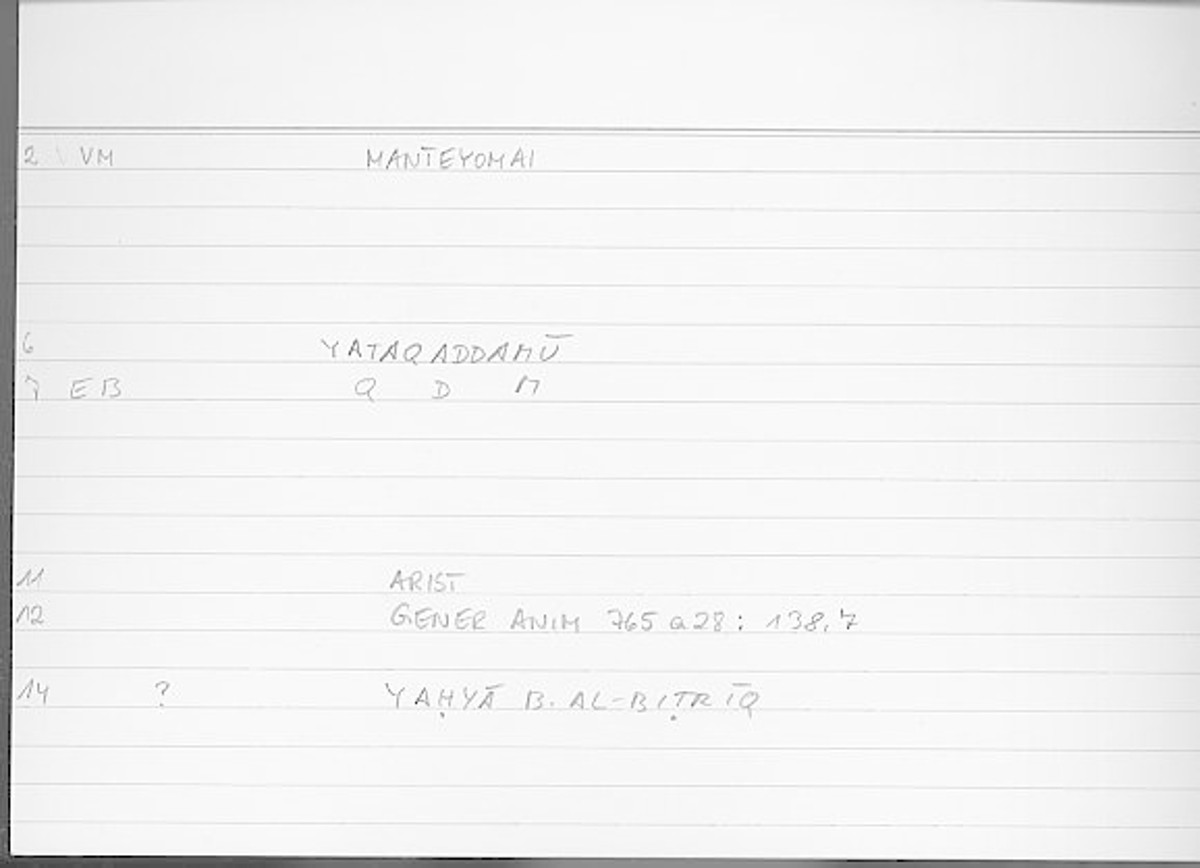 2 VM MANTEYOMAI
6 YATAQADDAMŪ
7 EB Q D M
11 ARIST
12 GENER ANIM 765 a 28 : 138,7
14 ? YAḤYĀ B. AL-BIṬRĪQ